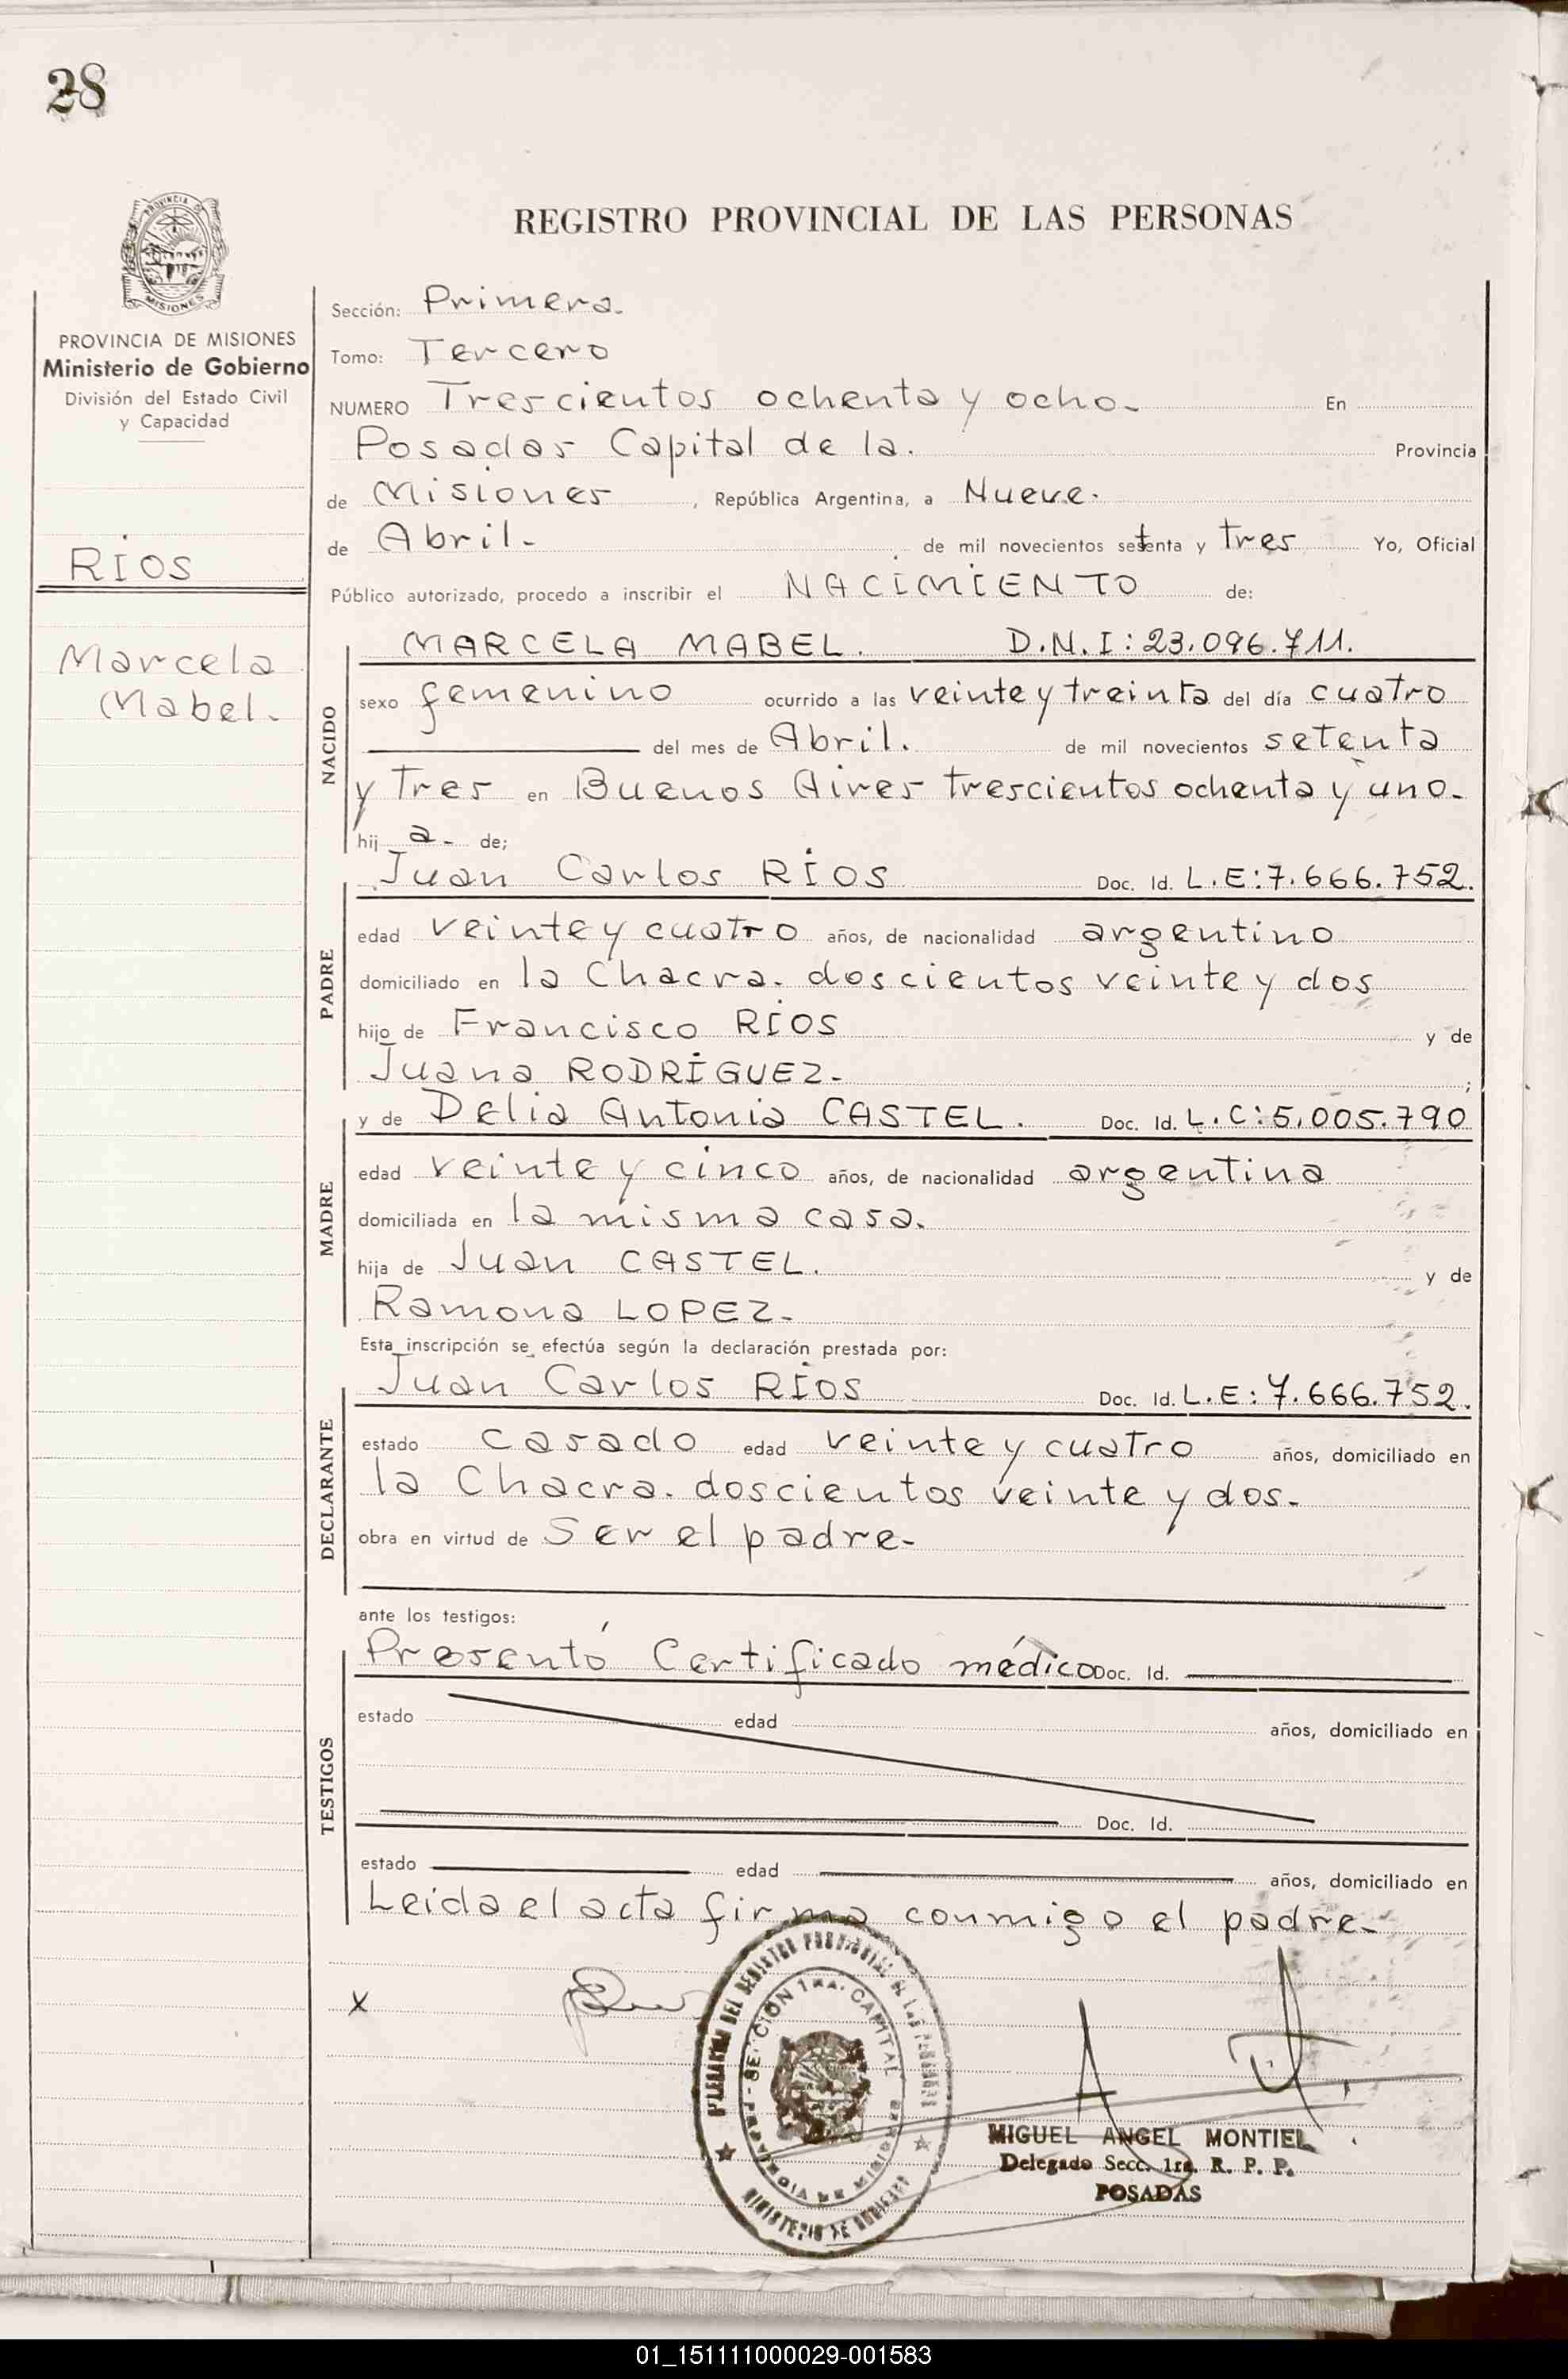 28
PROVINCIA DE
MISIONES
REGISTRO PROVINCIAL DE LAS PERSONAS
PROVINCIA DE MISIONES
Ministerio de Gobierno
División del Estado Civil
y Capacidad
RÍOS
Marcela
Mabel.
Sección: Primera.
Tomo: Tercero
NUMERO Trescientos ochenta y ocho. En
Posadas Capital de la. Provincia
de Misiones, República Argentina, a Nueve.
de Abril. de mil novecientos setenta y tres Yo, Oficial
Público autorizado, procedo a inscribir el NACIMIENTO de:
NACIDO
MARCELA MABEL. D.N.I: 23.096.711.
sexo femenino ocurrido a las veinte y treinta del día cuatro
del mes de Abril. de mil novecientos setenta
y tres en Buenos Aires trescientos ochenta y uno.
hij a. de;
PADRE
Juan Carlos RÍOS Doc. Id. L.E: 7.666.752.
edad veinte y cuatro años, de nacionalidad argentino
domiciliado en la Chacra. doscientos veinte y dos
hijo de Francisco RÍOS y de
Juana RODRÍGUEZ. ;
MADRE
y de Delia Antonia CASTEL. Doc. Id. L.C: 5.005.790
edad veinte y cinco años, de nacionalidad argentina
domiciliada en la misma casa.
hija de Juan CASTEL. y de
Ramona LOPEZ.
Esta inscripción se efectúa según la declaración prestada por:
DECLARANTE
Juan Carlos RÍOS Doc. Id. L.E: 7.666.752.
estado casado edad veinte y cuatro años, domiciliado en
la Chacra. doscientos veinte y dos.
obra en virtud de Ser el padre.
ante los testigos:
TESTIGOS
Presentó Certificado médico Doc. Id.
estado edad años, domiciliado en
Doc. Id.
estado edad años, domiciliado en
Leida el acta firma conmigo el padre.
x
DEL REGISTRO PROVINCIAL DE LAS PERSONAS
SECCION 1RA. CAPITAL
PROVINCIA DE MISIONES
MINISTERIO DE GOBIERNO
MIGUEL ANGEL MONTIEL
Delegado Secc. 1ra. R. P. P.
POSADAS
01_151111000029-001583